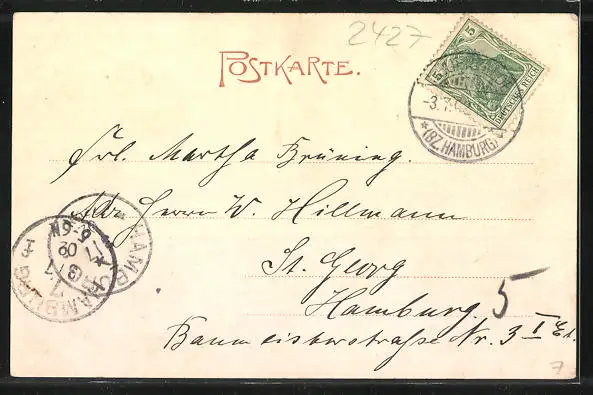 2427
POSTKARTE.
5 5
DEUTSCHES REICH
-3.7.
*(BZ. HAMBURG)*
Frl. Martha Brüning.
Adr. Herrn W. Hillmann
St. Georg
Hamburg. 5
Baumeisterstraße Nr. 3 I Et.
HAMB
HAMBURG
5-6N
7